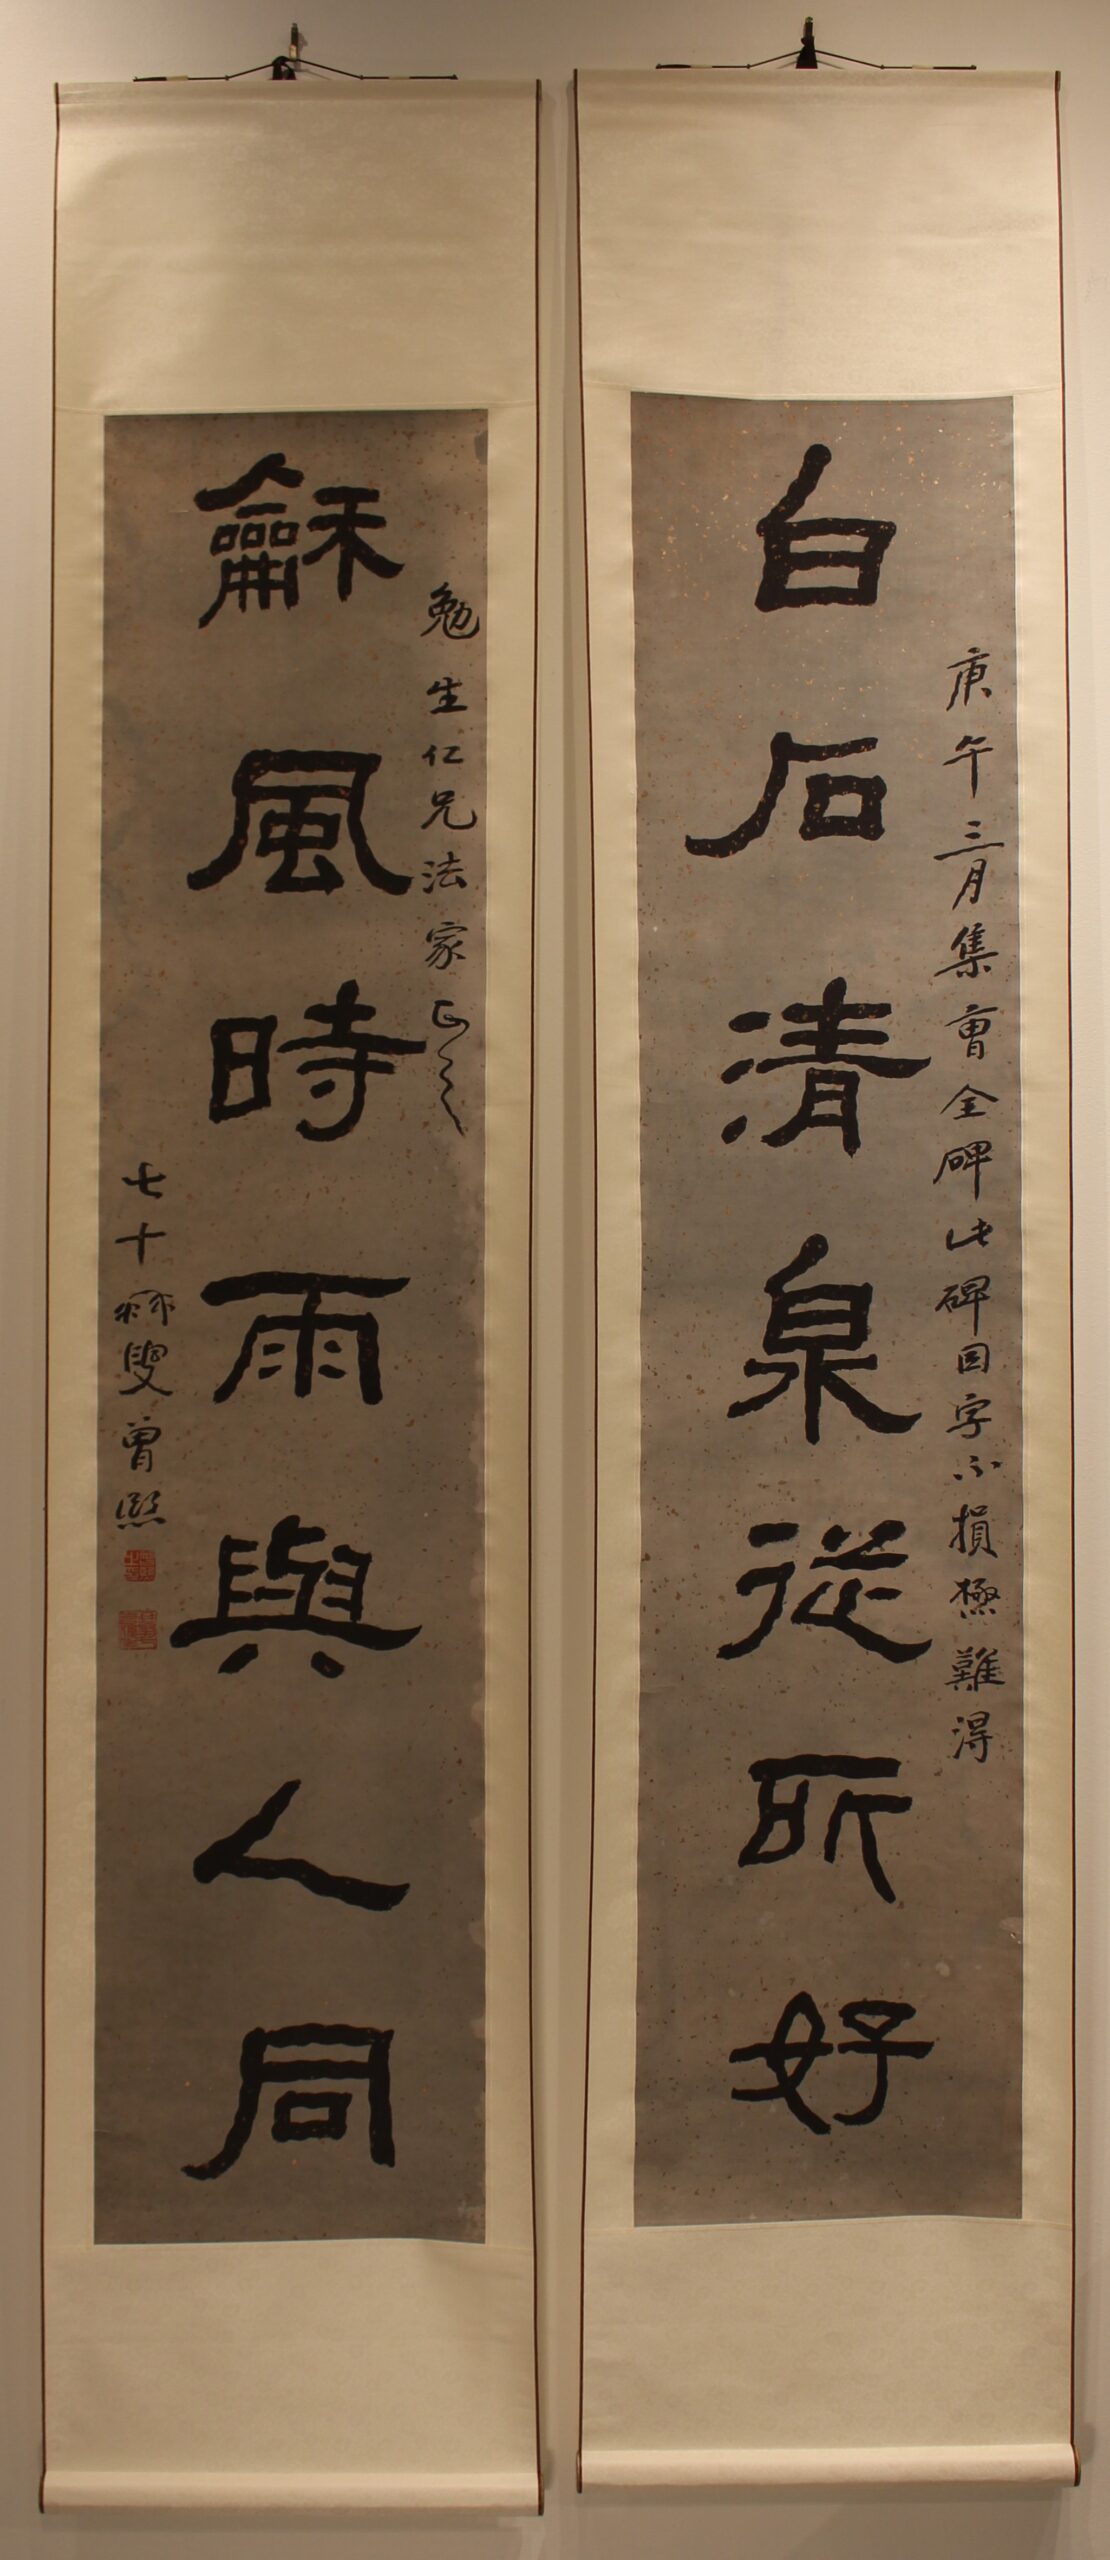 白石清泉從所好
庚午三月集曹全碑此碑因字不損極難得
龢風時雨與人同
勉生仁兄法家正之
七十叟曾熙